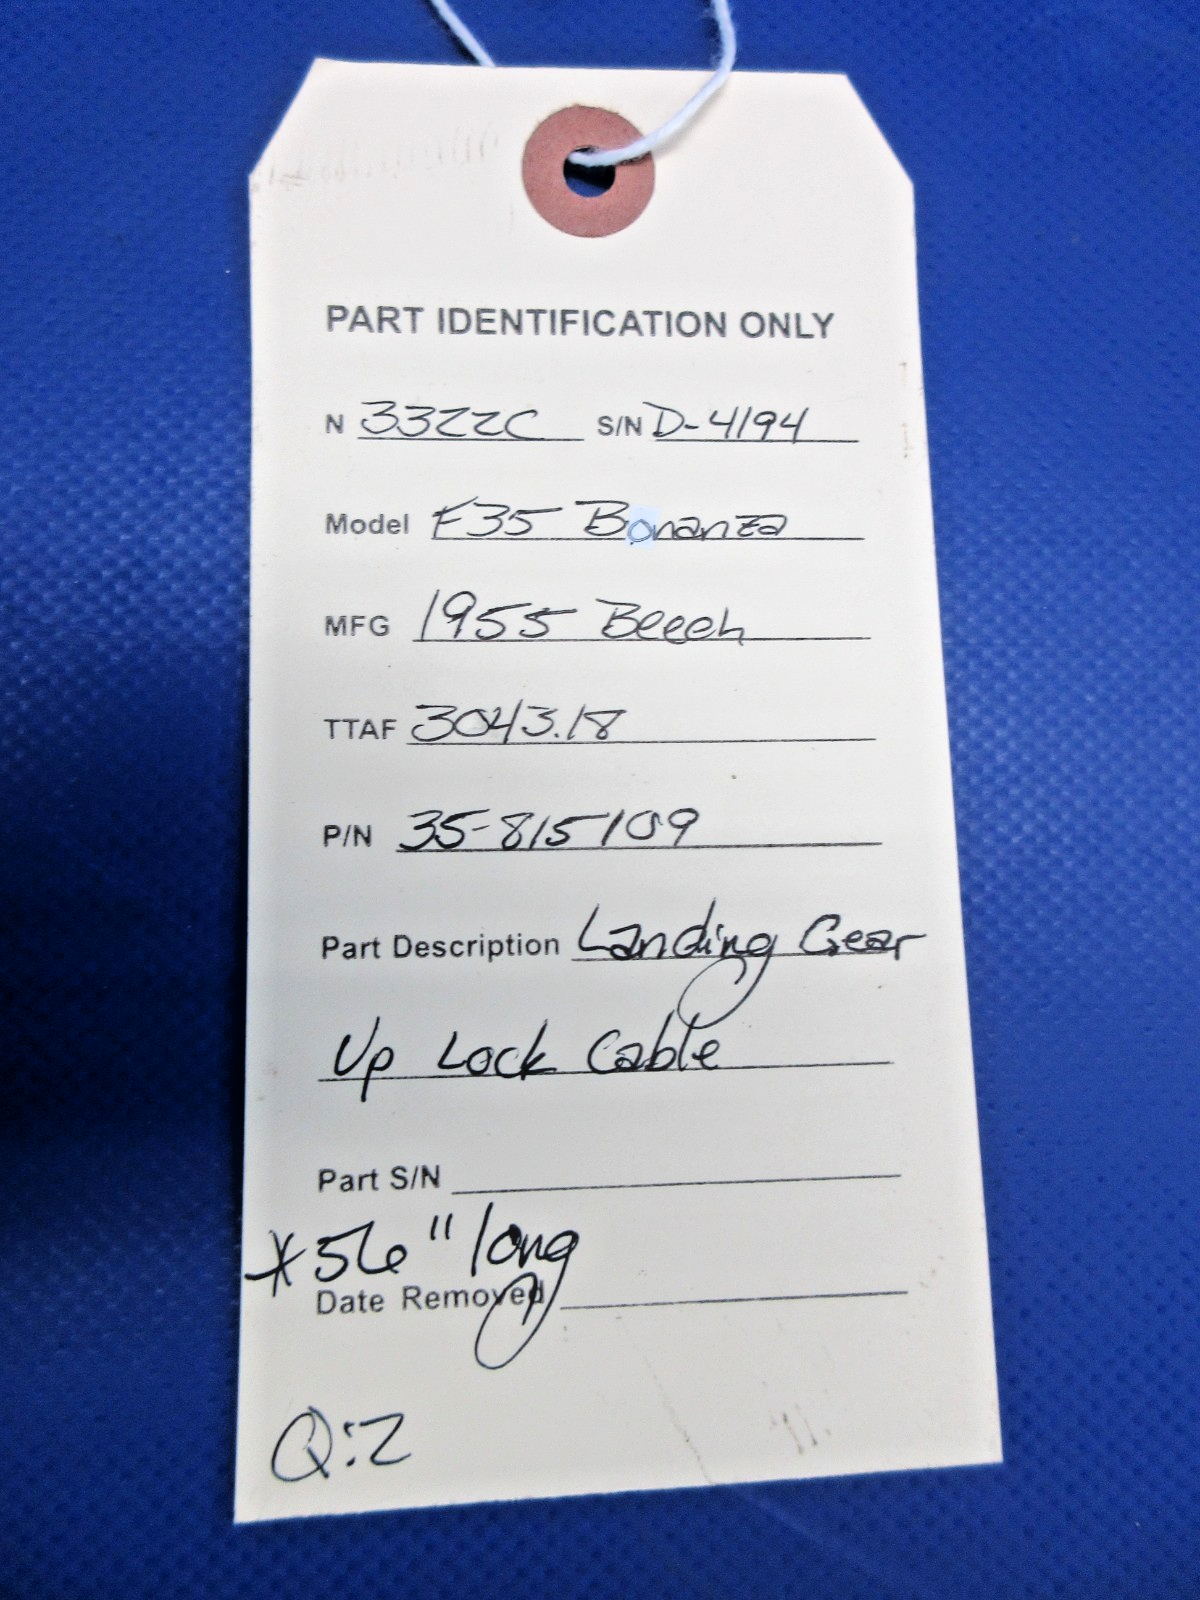 PART IDENTIFICATION ONLY
N 3322C S/N D-4194
Model F35 Bonanza
MFG 1955 Beech
TTAF 3043.18
P/N 35-815109
Part Description Landing Gear
Up Lock Cable
Part S/N
*56" long
Date Removed
Q:2